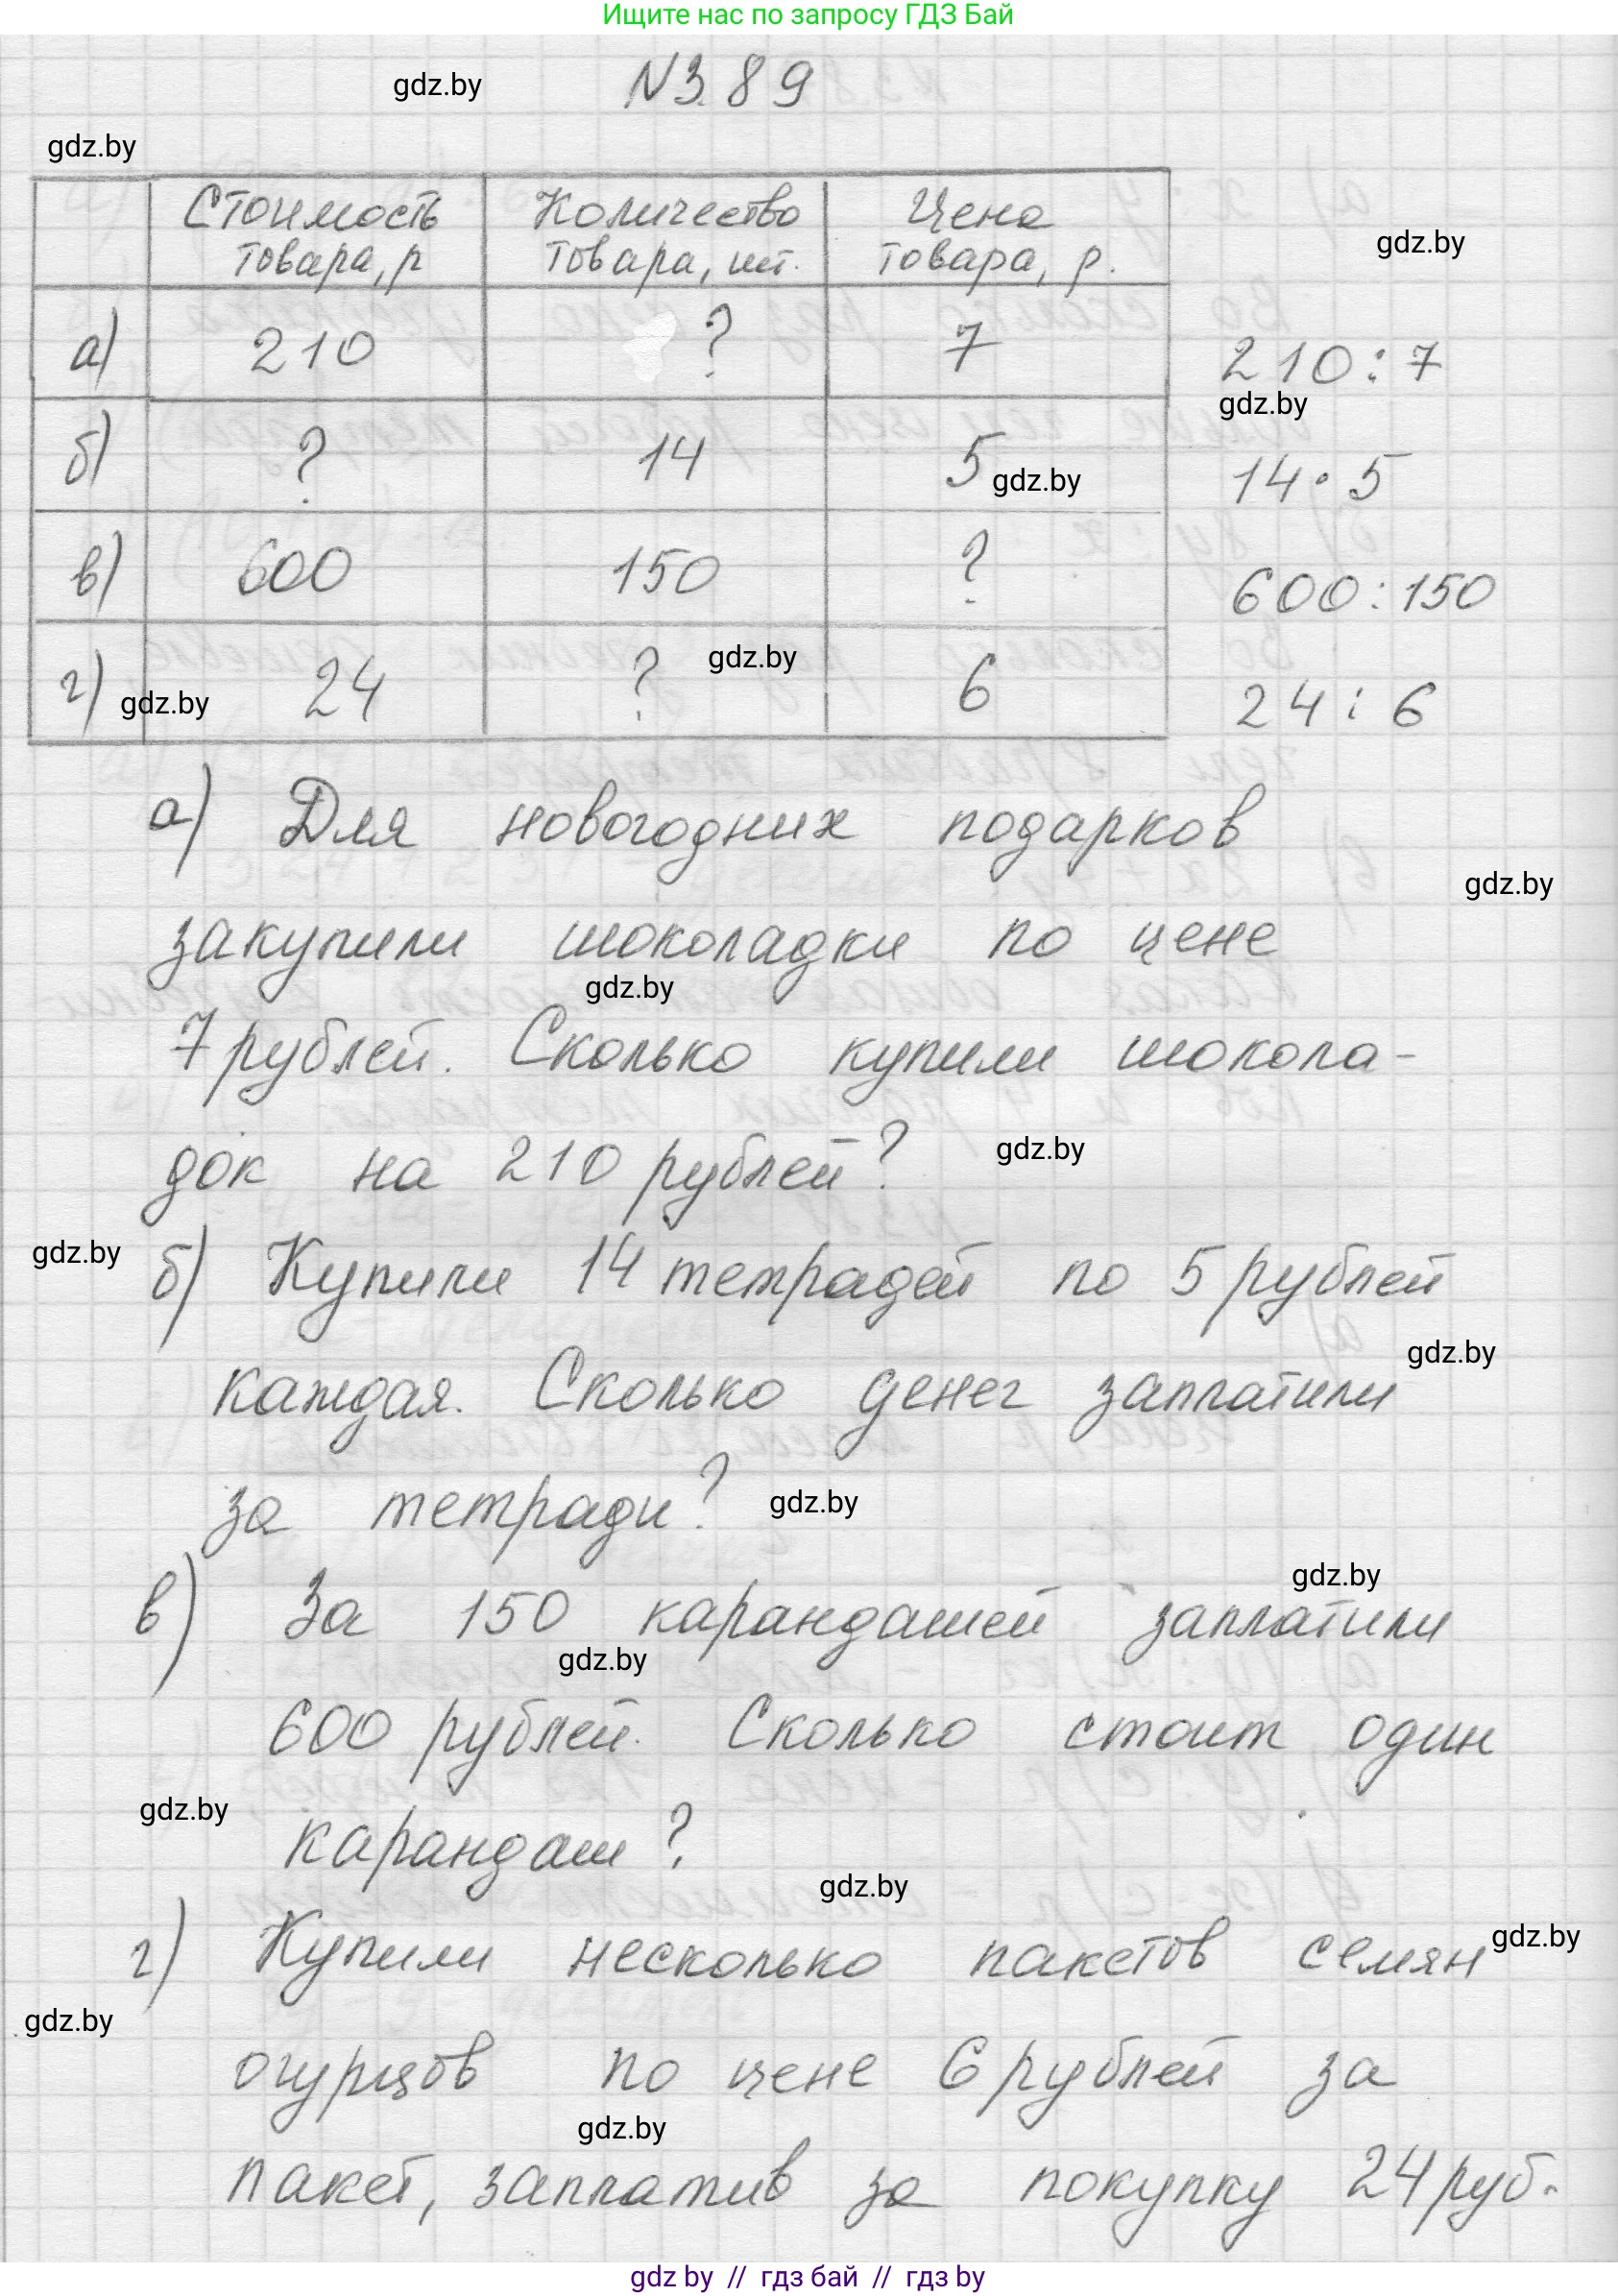 Ищите нас по запросу ГДЗ Бай
gdz.by
N3.89
gdz.by
Стоимость товара, р
Количество товара, шт.
Цена товара, р.
gdz.by
а) 210 ? 7 210:7
gdz.by
б) ? 14 5 14·5
gdz.by
в) 600 150 ? 600:150
gdz.by
г) 24 ? 6 24:6
gdz.by
а) Для новогодних подарков
gdz.by
закупили шоколадки по цене
gdz.by
7 рублей. Сколько купили шокола-
док на 210 рублей?
gdz.by
gdz.by
б) Купили 14 тетрадей по 5 рублей
gdz.by
каждая. Сколько денег заплатили
за тетради?
gdz.by
gdz.by
в) За 150 карандашей заплатили
gdz.by
600 рублей. Сколько стоит один
gdz.by
карандаш?
gdz.by
г) Купили несколько пакетов семян
gdz.by
gdz.by
огурцов по цене 6 рублей за
gdz.by
пакет, заплатив за покупку 24 руб.
gdz by // гдз бай // гдз by